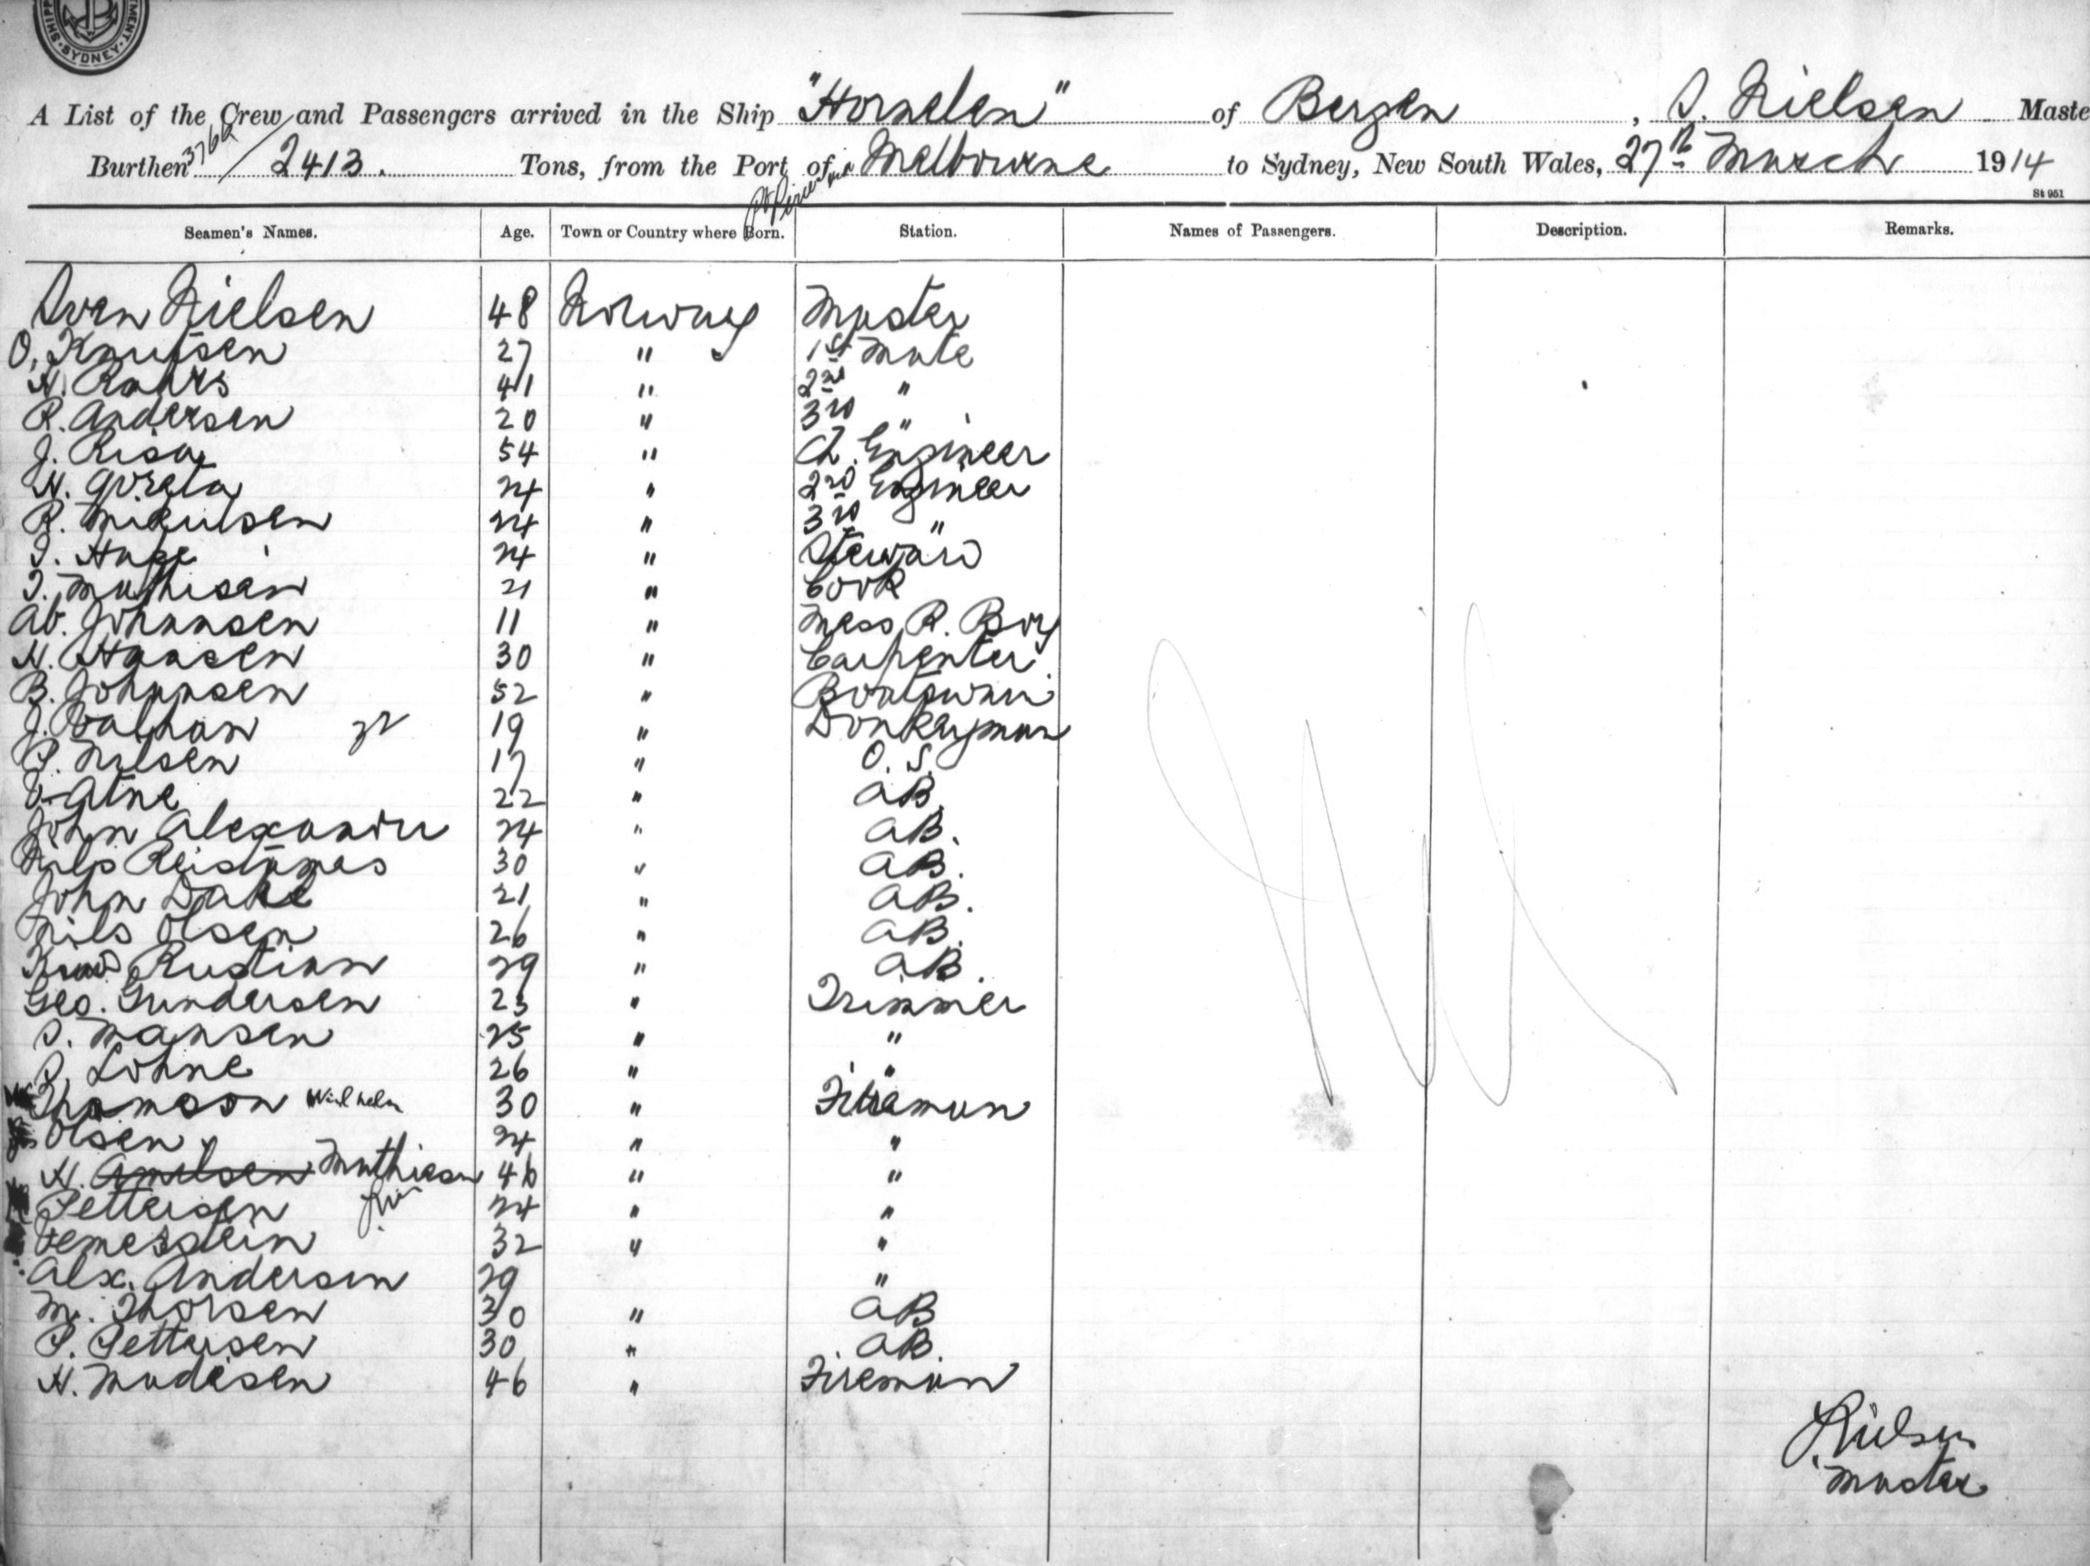 SHIPP MENT. SYDNEY.
A List of the Crew and Passengers arrived in the Ship "Hornelen" of Bergen, S. Nielsen Maste
Burthen 3760 / 2413. Tons, from the Port of Pt Pirie via Melbourne to Sydney, New South Wales, 27th March 1914
St 951
Seamen's Names. Age. Town or Country where Born. Station. Names of Passengers. Description. Remarks.
Sven Nielsen 48 Norway Master
O. Knutsen 27 " 1st Mate
H. Rohrs 41 " 2nd "
R. Andersen 20 " 3rd "
J. Risa 54 " Ch. Engineer
24 " 2nd Engineer
R. Mikulsen 24 " 3rd "
T. Hage 24 " Steward
T. Mathisen 21 " Cook
Ab. Johansen 11 " Mess R. Boy
H. Hansen 30 " Carpenter
B. Johansen 52 " Boatswain
J. 19 " Donkeyman
P. Nilsen 17 " O. S.
22 " AB.
John Alexander 24 " AB.
Nils 30 " AB.
John Dahl 21 " AB.
Nils Olsen 26 " AB.
Rustian 29 " AB.
Geo. Gundersen 23 " Trimmer
S. Mansen 25 " "
P. Lohne 26 " "
Thomson Wilhelm 30 " Fireman
Olsen 24 " "
H. Amelsen Mathiesen 46 " "
Pettersen 24 " "
32 " "
Alx. Andersen 29 "
M. Thorsen 30 " AB
P. Pettersen 30 " AB.
H. Madisen 46 " Fireman
Nielsen
Master